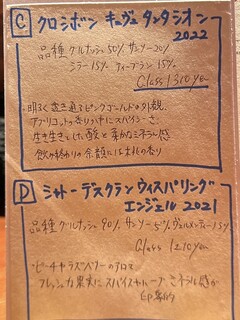 C クロシボン キュヴェ タンタシオン
2022
品種 グルナッシュ 50% サンソー 20%
シラー 15% ティブラン 15%
Glass 1310 yen
・明るく透き通るピンクゴールドの外観。
アプリコットの香りの中にスパイシーさ。
生き生きとした酸と柔かなミネラル感
飲み終わりの余韻には の香り
D シャトー・デスクラン ウィスパリング
エンジェル 2021
品種 グルナッシュ 90% サンソー 5% ヴェルメンティーノ 5%
Glass 1210 yen
・ピーチやラズベリーのアロマ
フレッシュな果実にスパイスやハーブ、ミネラル感が
印象的